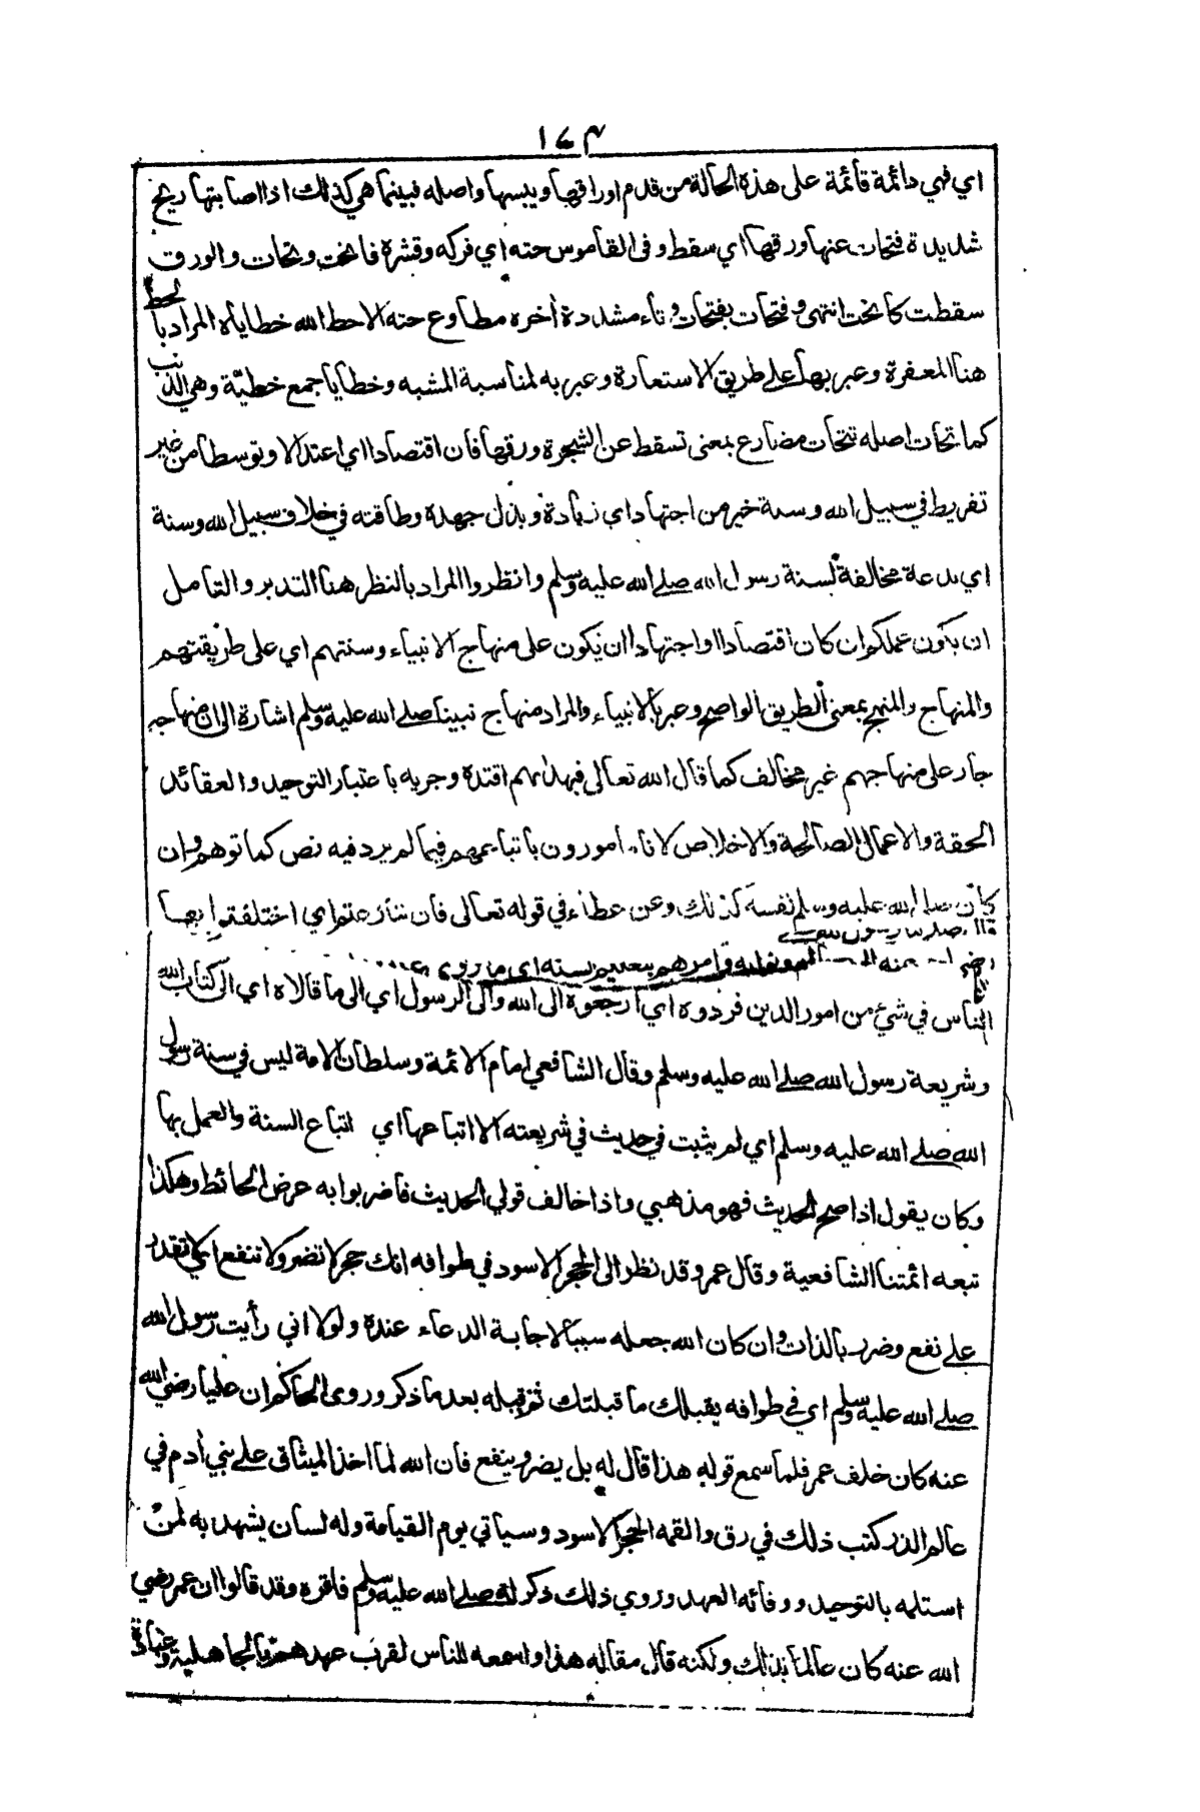 ١٤٣
اي فهي دائمة قائمة على هذه الحالة من قدم اوراقها ويبسها واصله فبينما هي كذلك اذا اصابتها ريح
شديدة فتحات عنها ورقها اي سقط وفي القاموس حته اي فركه وقشره فانحت وتحات والورق
سقطت كانحت انتهى وفتحات بفتحات وتاء مشددة آخره مطاوع حته الا حط الله خطاياه المراد بالحط
هنا المغفرة وعبر بها على طريق الاستعارة وعبر به لمناسبة المشبه وخطايا جمع خطيّة وهي الذنب
كما تحات اصله تتحات مضارع بمعنى تسقط عن الشجرة ورقها فان اقتصادا اي اعتدالا وتوسطا من غير
تفريط في سبيل الله وسنة خير من اجتهاد اي زيادة وبذل جهده وطاقته في خلاف سبيل الله وسنة
اي بدعة مخالفة لسنة رسول الله صلى الله عليه وسلم وانظروا المراد بالنظر هنا التدبر والتامل
ان يكون عملكم ان كان اقتصادا او اجتهادا ان يكون على منهاج الانبياء وسنتهم اي على طريقتهم
والمنهاج والمنهج بمعنى الطريق الواضح وعبر بالانبياء والمراد منهاج نبينا صلى الله عليه وسلم اشارة الى ان منهاجه
جار على منهاجهم غير مخالف كما قال الله تعالى فبهداهم اقتده وجريه باعتبار التوحيد والعقائد
الحقة والاعمال الصالحة والاخلاص لانا مامورون باتباعهم فيما لم يرد فيه نص كما توهم وان
كان صلى الله عليه وسلم نفسه كذلك وعن عطاء في قوله تعالى فان تنازعتم اي اختلفتم ايها
الناس في شيء من امور الدين فردوه اي ارجعوه الى الله والى الرسول اي الى ما قالاه اي الى كتاب الله
وشريعة رسول الله صلى الله عليه وسلم وقال الشافعي امام الائمة وسلطان الامة ليس في سنة رسول
الله صلى الله عليه وسلم اي لم يثبت في حديث في شريعته الا اتباعها اي اتباع السنة والعمل بها
وكان يقول اذا صح الحديث فهو مذهبي واذا خالف قولي الحديث فاضربوا به عرض الحائط وهكذا
تبعه ائمتنا الشافعية وقال عمر وقد نظر الى الحجر الاسود في طوافه انك حجر لا تضر ولا تنفع اي لا تقدر
على نفع وضرر بالذات وان كان الله جعله سببا لاجابة الدعاء عنده ولولا اني رأيت رسول الله
صلى الله عليه وسلم اي في طوافه يقبلك ما قبلتك ثم قبله بعد ما ذكر وروى الحاكم ان عليا رضي الله
عنه كان خلف عمر فلما سمع قوله هذا قال له بل يضر وينفع فان الله لما اخذ الميثاق على بني آدم في
عالم الذر كتب ذلك في رق والقمه الحجر الاسود وسياتي يوم القيامة وله لسان يشهد به لمن
استلمه بالتوحيد ووفائه العهد وروي ذلك ذكر له صلى الله عليه وسلم فاقره وقد قالوا ان عمر رضي
الله عنه كان عالما بذلك ولكنه قال مقاله هذا واسمعه للناس لقرب عهدهم بالجاهلية وعبادة